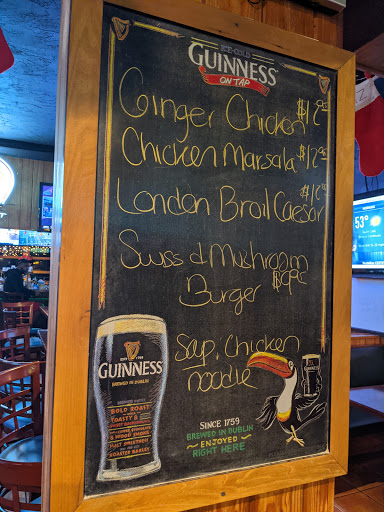 ICE-COLD
GUINNESS
ON TAP
Ginger Chicken $12.95
Chicken Marsala $12.95
London Broil Caesar
Swiss d Mushroom
Burger
Soup, Chicken
noodle
GUINNESS
BREWED IN DUBLIN
BOLD ROAST
TOASTY &
MALT
ROASTED BARLEY
SINCE 1759
BREWED IN DUBLIN
ENJOYED
RIGHT HERE
53°